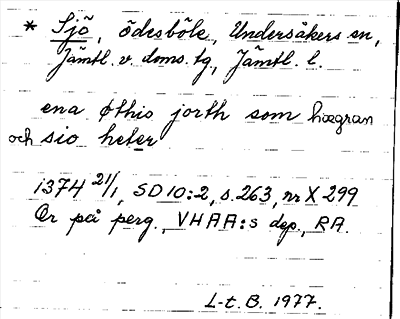 * Sjö, ödesböle, Undersåkers sn,
Jämtl. v. doms. tg, Jämtl. l.
ena øthis jorth som hægran
och sio heter
1374 21/1, SD 10:2, s. 263, nr X 299
Or på perg., VHAA:s dep., RA.
L-t. B. 1977.